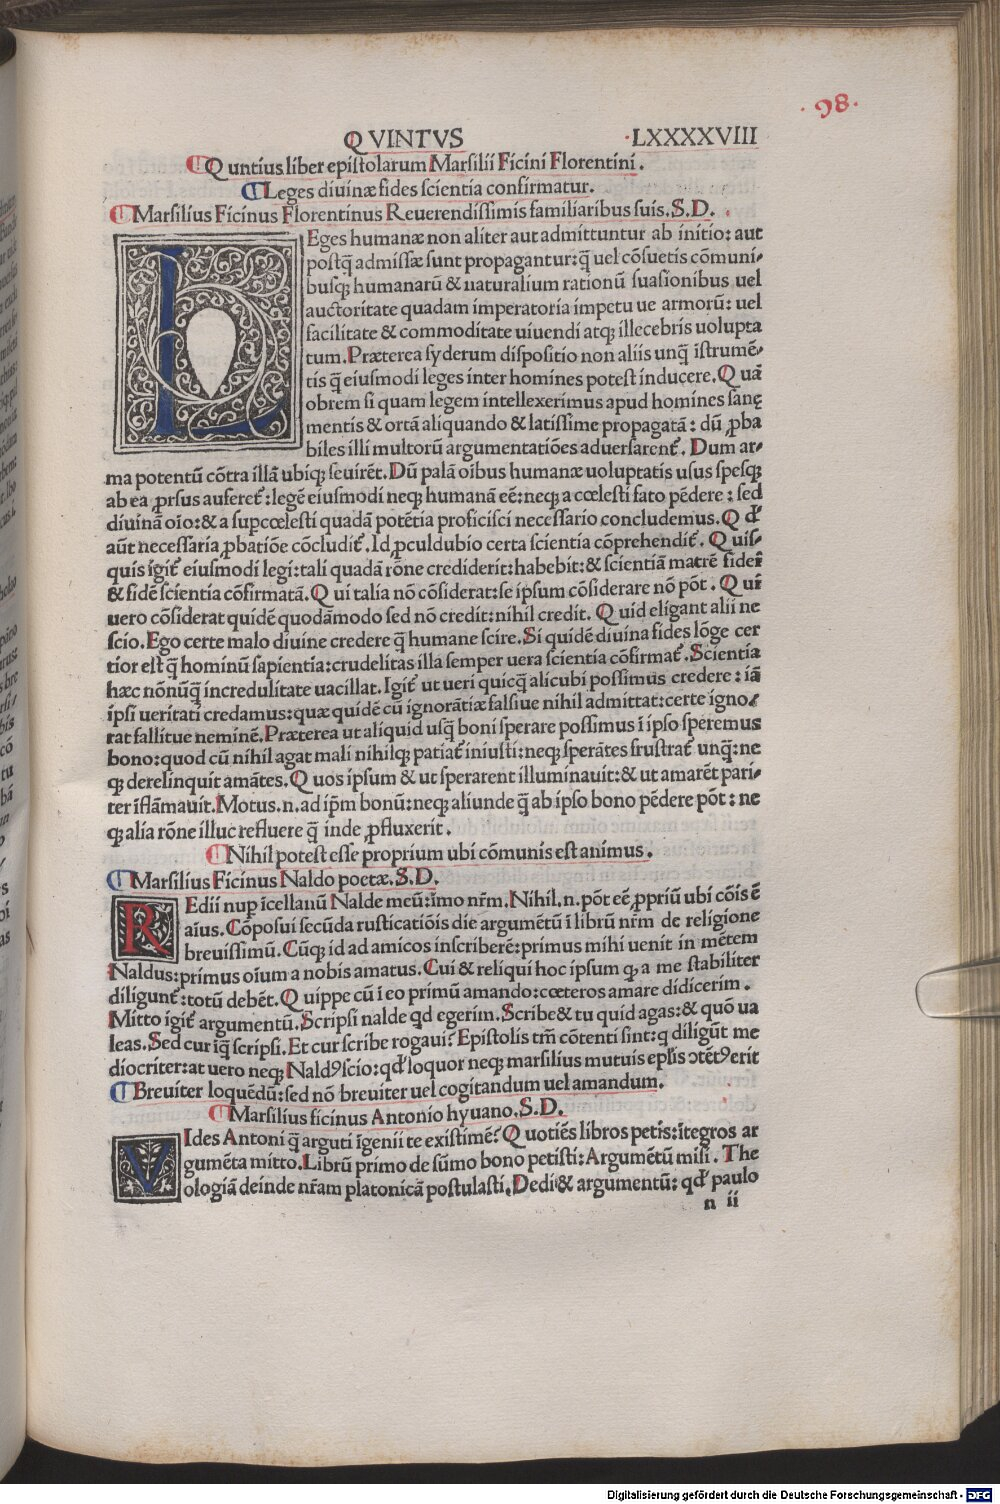 ·98·
QVINTVS ·LXXXXVIII
Quntius liber epistolarum Marsilii Ficini Florentini.
Leges diuinæ fides scientia confirmatur.
Marsilius Ficinus Florentinus Reuerendissimis familiaribus suis. S.D.
LEges humanæ non aliter aut admittuntur ab initio: aut
postq̃ admissæ sunt propagantur: q̃ uel cõsuetis cõmuni-
busq; humanarũ & naturalium rationũ suasionibus uel
auctoritate quadam imperatoria impetu ue armorũ: uel
facilitate & commoditate uiuendi atq; illecebris uolupta
tum. Præterea syderum dispositio non aliis unq̃ istrumẽ-
tis q̃ eiusmodi leges inter homines potest inducere. Quã
obrem si quam legem intellexerimus apud homines sanę
mentis & ortã aliquando & latissime propagatã: dũ ꝓba
biles illi multorũ argumentatiões aduersarent᷑. Dum ar-
ma potentũ cõtra illã ubiq; seuirẽt. Dũ palã oĩbus humanæ uoluptatis usus spesq;
ab ea ꝓrsus auferet᷑: legẽ eiusmodi neq; humanã eẽ: neq; a cœlesti fato pẽdere: sed
diuinã oĩo: & a supcœlesti quadã potẽtia proficisci necessario concludemus. Qđ
aũt necessaria ꝓbatiõe cõcludit᷑. Id ꝓculdubio certa scientia cõprehendit᷑. Quis-
quis igit᷑ eiusmodi legi: tali quadã rõne crediderit: habebit: & scientiã matrẽ fidei
& fidẽ scientia cõfirmatã. Qui talia nõ cõsiderat: se ipsum cõsiderare nõ põt. Qui
uero cõsiderat quidẽ quodãmodo sed nõ credit: nihil credit. Quid eligant alii ne
scio. Ego certe malo diuine credere q̃ humane scire. Si quidẽ diuina fides lõge cer
tior est q̃ hominũ sapientia: crudelitas illa semper uera scientia cõfirmat᷑. Scientia
hæc nõnũq̃ incredulitate uacillat. Igit᷑ ut ueri quicq̃ alicubi possimus credere: iã
ipsi ueritati credamus: quæ quidẽ cũ ignorãtiæ falsiue nihil admittat: certe igno-
rat fallitue neminẽ. Præterea ut aliquid usq̃ boni sperare possimus ĩ ipso speremus
bono: quod cũ nihil agat mali nihilq; patiat᷑ iniusti: neq; sperãtes frustrat᷑ unq̃: ne
q; derelinquit amãtes. Quos ipsum & ut sperarent illuminauit: & ut amarẽt pari-
ter ĩflãmauit. Motus .n. ad ip̃m bonũ: neq; aliunde q̃ ab ipso bono pẽdere põt: ne
q; alia rõne illuc refluere q̃ inde ꝓfluxerit.
Nihil potest esse proprium ubi cõmunis est animus.
Marsilius Ficinus Naldo poetæ. S.D.
REdii nup ĩcellanũ Nalde meũ: ĩmo nr̃m. Nihil .n. põt eẽ ꝓpriũ ubi cõis ẽ
aĩus. Cõposui secũda rusticatiõis die argumẽtũ ĩ librũ nr̃m de religione
breuissimũ. Cũq; id ad amicos inscriberẽ: primus mihi uenit in mẽtem
Naldus: primus oĩum a nobis amatus. Cui & reliqui hoc ipsum q; a me stabiliter
diligunt᷑: totũ debẽt. Quippe cũ ĩ eo primũ amando: cœteros amare didicerim.
Mitto igit᷑ argumentũ. Scripsi nalde qd egerim. Scribe & tu quid agas: & quõ ua
leas. Sed cur iq̃ scripsi. Et cur scribe rogaui? Epistolis tm̃ cõtenti sint: q diligũt me
diocriter: at uero neq; Naldꝰ scio: qđ loquor neq; marsilius mutuis epl̃is ↄtẽtꝰ erit
Breuiter loquẽdũ: sed nõ breuiter uel cogitandum uel amandum.
Marsilius ficinus Antonio hyuano. S.D.
VIdes Antoni q̃ arguti ĩgenii te existimẽ? Quotiẽs libros petis: ĩtegros ar
gumẽta mitto. Librũ primo de sũmo bono petisti: Argumẽtũ misi. The
ologiã deinde nr̃am platonicã postulasti. Dedi & argumentũ: qđ paulo
n ii
Digitalisierung gefördert durch die Deutsche Forschungsgemeinschaft - DFG